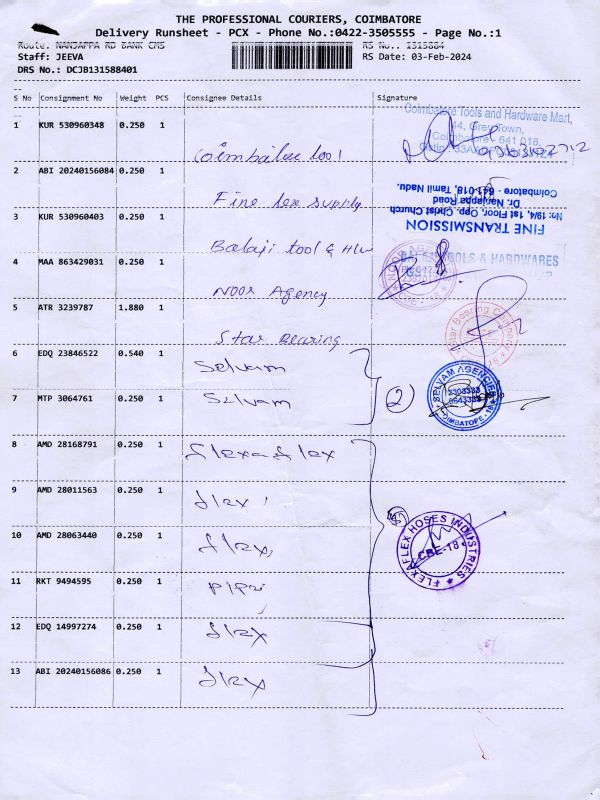 THE PROFESSIONAL COURIERS, COIMBATORE
Delivery Runsheet - PCX - Phone No.:0422-3505555 - Page No.:1
Route: NANJAPPA RD BANK CMS RS No.: 1315884
Staff: JEEVA RS Date: 03-Feb-2024
DRS No.: DCJB131588401
S No Consignment No Weight PCS Consignee Details Signature
1 KUR 530960348 0.250 1
Coimbatore Tools and Hardware Mart,
44, Grey Town,
Coimbatore - 641 018.
Coimbatore tool
2 ABI 20240156084 0.250 1
Fine tex supply
FINE TRANSMISSION
No: 19/4, 1st Floor, Opp. Christ Church
Dr. Nanjappa Road
Coimbatore - 641 018, Tamil Nadu.
3 KUR 530960403 0.250 1
Balaji tool & HW
BALAJI TOOLS & HARDWARES
4 MAA 863429031 0.250 1
Noor Agency
NOOR AGENCY
CBE-18
5 ATR 3239787 1.880 1
Star Bearing
Star Bearing Company
6 EDQ 23846522 0.540 1
Selvam
7 MTP 3064761 0.250 1
Selvam
2
SELVAM AGENCIES
COIMBATORE - 18
8 AMD 28168791 0.250 1
flexaflex
9 AMD 28011563 0.250 1
flex
10 AMD 28063440 0.250 1
flex
FLEXAFLEX HOSES INDUSTRIES
CBE-18
11 RKT 9494595 0.250 1
12 EDQ 14997274 0.250 1
flex
13 ABI 20240156086 0.250 1
flex